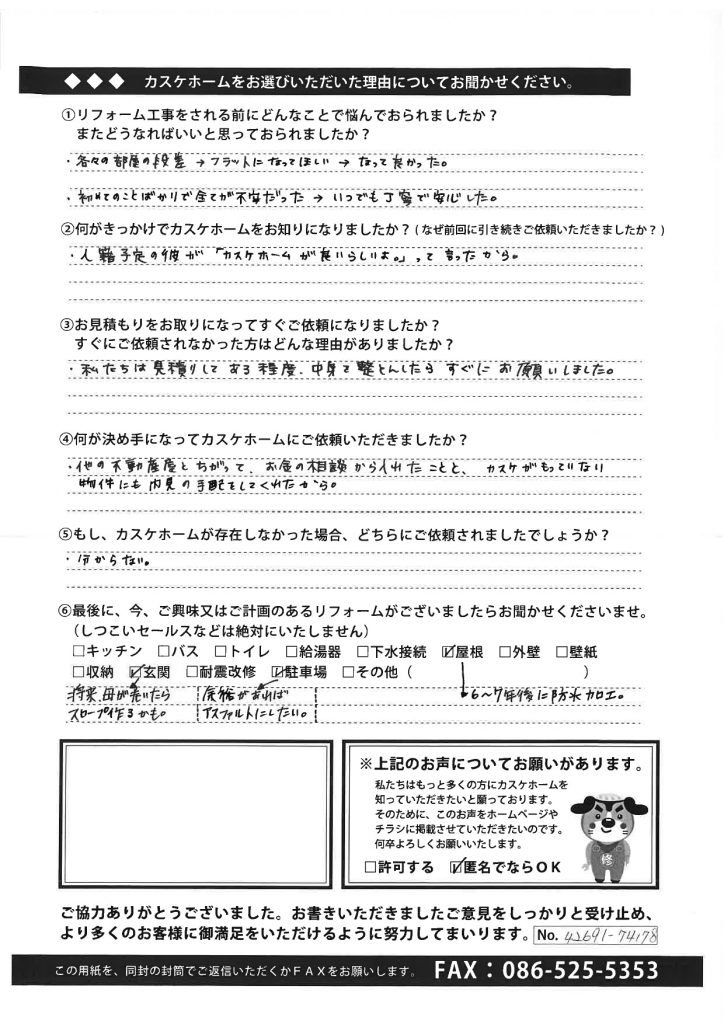 ◆ ◆ ◆ カスケホームをお選びいただいた理由についてお聞かせください。
①リフォーム工事をされる前にどんなことで悩んでおられましたか？
またどうなればいいと思っておられましたか？
・各々の部屋の段差 → フラットになってほしい → なって良かった。
・初めてのことばかりで全てが不安だった → いつでも丁寧で安心した。
②何がきっかけでカスケホームをお知りになりましたか？（なぜ前回に引き続きご依頼いただきましたか？）
・入籍予定の彼が「カスケホームが良いらしいよ。」って言ったから。
③お見積もりをお取りになってすぐご依頼になりましたか？
すぐにご依頼されなかった方はどんな理由がありましたか？
・私たちは見積りしてある程度、中身を整とんしたらすぐにお願いしました。
④何が決め手になってカスケホームにご依頼いただきましたか？
・他の不動産屋とちがって、お金の相談から入れたことと、カスケがもっていない
物件にも内見の手配をしてくれたから。
⑤もし、カスケホームが存在しなかった場合、どちらにご依頼されましたでしょうか？
・分からない。
⑥最後に、今、ご興味又はご計画のあるリフォームがございましたらお聞かせくださいませ。
（しつこいセールスなどは絶対にいたしません）
□キッチン □バス □トイレ □給湯器 □下水接続 ☑屋根 □外壁 □壁紙
□収納 ☑玄関 □耐震改修 ☑駐車場 □その他（ ）
将来、母が老いたら
スロープ作るかも。
余裕があれば
アスファルトにしたい。
6～7年後に防水加工。
※上記のお声についてお願いがあります。
私たちはもっと多くの方にカスケホームを
知っていただきたいと願っております。
そのために、このお声をホームページや
チラシに掲載させていただきたいのです。
何卒よろしくお願いいたします。
□許可する ☑匿名でならＯＫ
修
ご協力ありがとうございました。お書きいただきましたご意見をしっかりと受け止め、
より多くのお客様に御満足をいただけるように努力してまいります。
No.
この用紙を、同封の封筒でご返信いただくかＦＡＸをお願いします。 FAX：086-525-5353